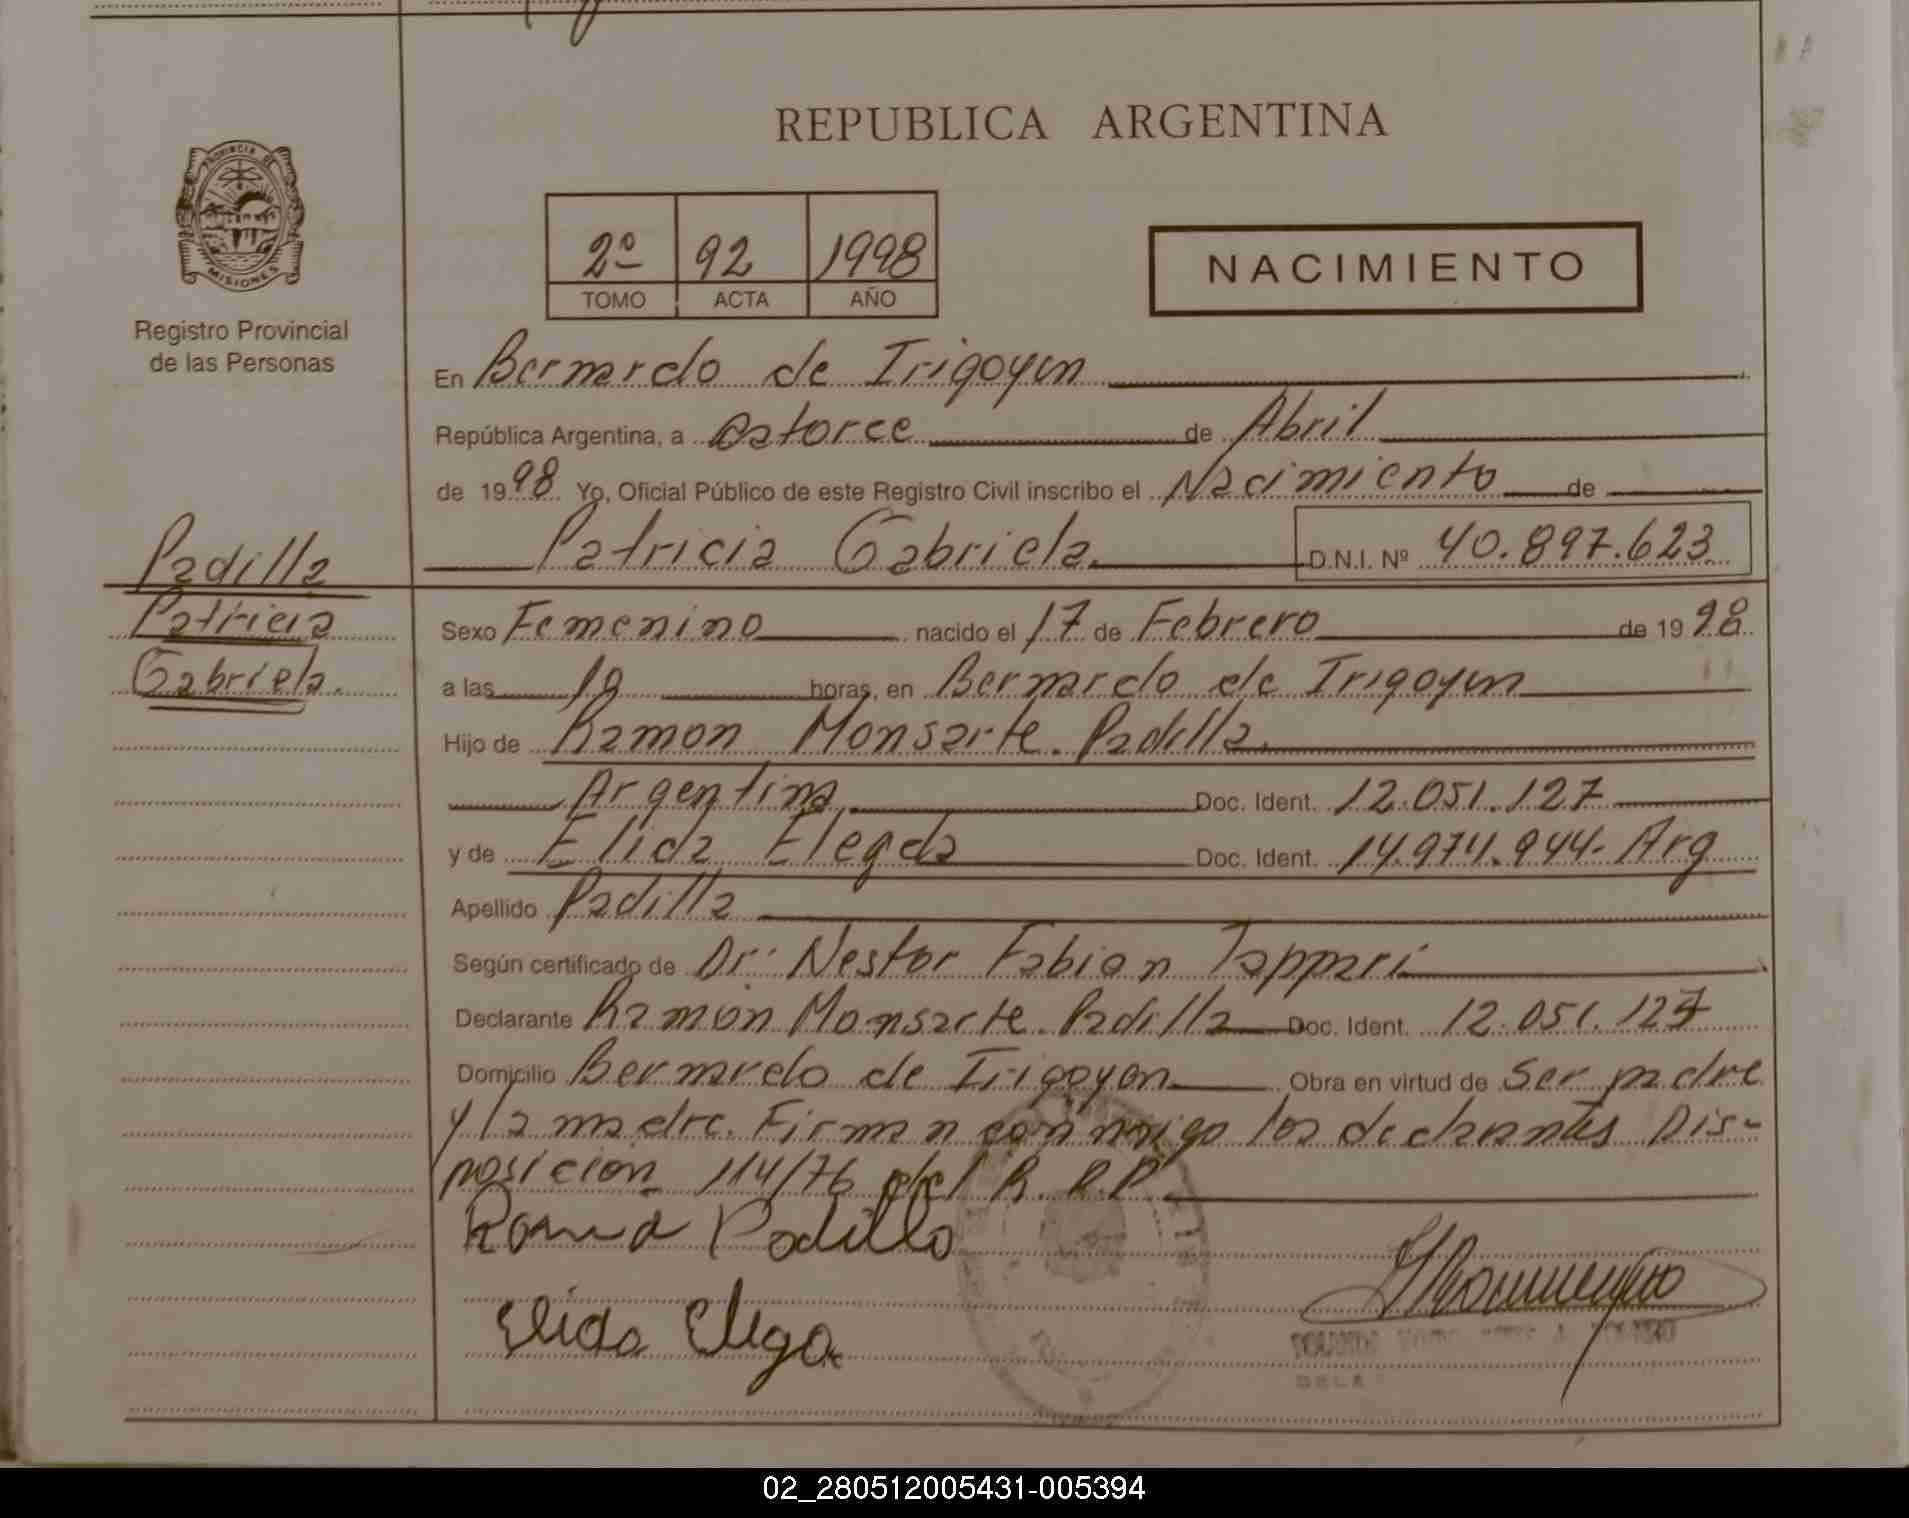 REPUBLICA ARGENTINA
PROVINCIA DE
MISIONES
Registro Provincial
de las Personas
2º 92 1998
TOMO ACTA AÑO
NACIMIENTO
En Bernardo de Irigoyen
República Argentina, a catorce de Abril
de 1998 Yo, Oficial Público de este Registro Civil inscribo el Nacimiento de
Patricia Gabriela. D.N.I. Nº 40.897.623
Padilla
Patricia
Gabriela.
Sexo Femenino nacido el 17 de Febrero de 1998
a las horas, en Bernardo de Irigoyen
Hijo de Ramon Monsarte. Padilla.
Argentina Doc. Ident. 12.051.127
y de Elida Elegda Doc. Ident. 14.974.944- Arg
Apellido Padilla
Según certificado de Dr: Nestor Fabian Tappari
Declarante Ramón Monsarte. Padilla Doc. Ident. 12.051.127
Domicilio Bernardo de Irigoyen Obra en virtud de Ser padre
y la madre. Firman conmigo los declarantes Dis-
posición 114/76 del R.R.P.
Padilla
Elida Elega
02_280512005431-005394